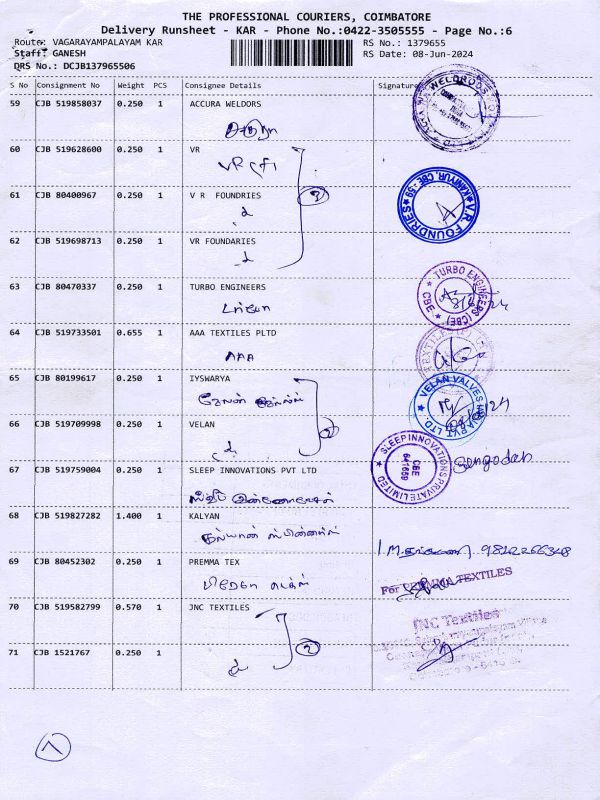 THE PROFESSIONAL COURIERS, COIMBATORE
Delivery Runsheet - KAR - Phone No.:0422-3505555 - Page No.:6
Route: VAGARAYAMPALAYAM KAR RS No.: 1379655
Staff: GANESH RS Date: 08-Jun-2024
DRS No.: DCJB137965506
S No Consignment No Weight PCS Consignee Details Signature
59 CJB 519858037 0.250 1 ACCURA WELDORS
60 CJB 519628600 0.250 1 VR
VR
61 CJB 80400967 0.250 1 V R FOUNDRIES
2
V.R. FOUNDRIES KANIYUR, CBE - 59
62 CJB 519698713 0.250 1 VR FOUNDARIES
63 CJB 80470337 0.250 1 TURBO ENGINEERS
TURBO ENGINEERS (CBE) CBE
64 CJB 519733501 0.655 1 AAA TEXTILES PLTD
AAA
65 CJB 80199617 0.250 1 IYSWARYA
வேலன்
VELAN VALVES INDIA PVT LTD.
66 CJB 519709998 0.250 1 VELAN
2
SLEEP INNOVATIONS PRIVATE LIMITED CBE 641659
Sengodan
67 CJB 519759004 0.250 1 SLEEP INNOVATIONS PVT LTD
68 CJB 519827282 1.400 1 KALYAN
கல்யாண்
69 CJB 80452302 0.250 1 PREMMA TEX
For PREMMA TEXTILES
70 CJB 519582799 0.570 1 JNC TEXTILES
JNC Textiles
2
71 CJB 1521767 0.250 1